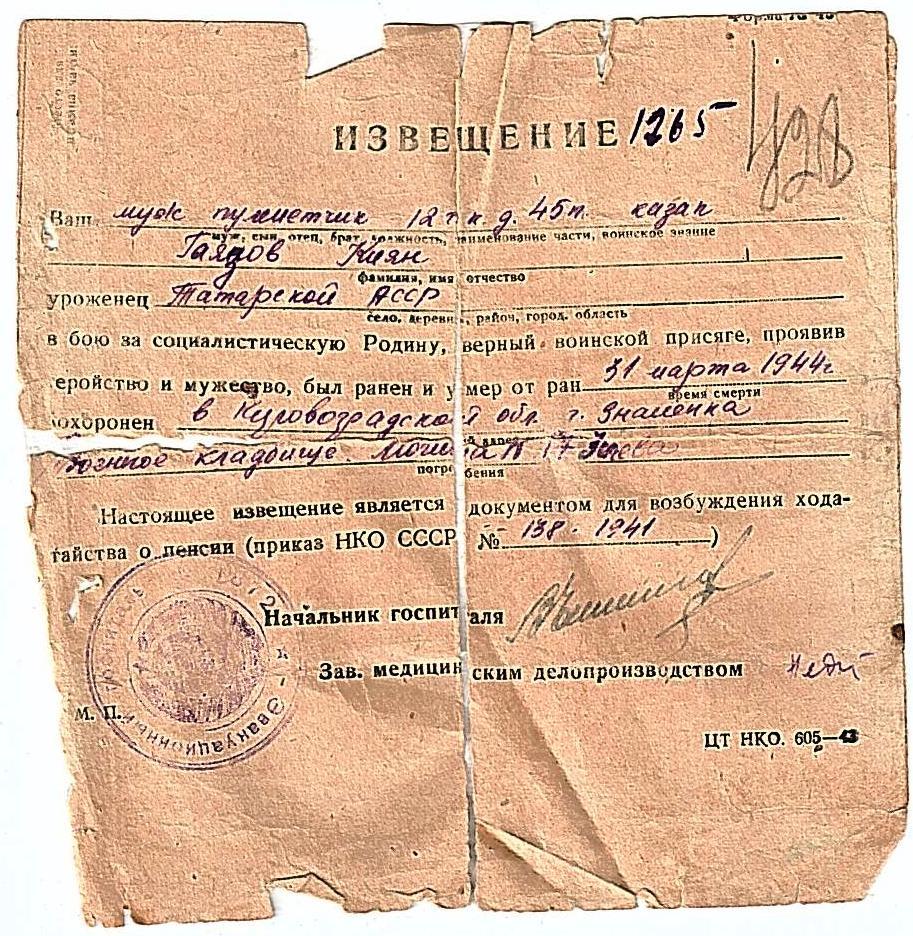 Форма № 43
Место для
ИЗВЕЩЕНИЕ 1265
428
Ваш муж пулиметчик 12 г к д. 45 п. казак
муж, сын, отец, брат, должность, наименование части, воинское звание
Гаязов Киян
фамилия, имя, отчество
уроженец Татарской АССР
село, деревня, район, город, область
в бою за социалистическую Родину, верный воинской присяге, проявив
еройство и мужество, был ранен и умер от ран 31 марта 1944 г
время смерти
охоронен в Кировоградской обл г. Знаменка
Военное кладбище. Могила N 17
погребения
Настоящее извещение является документом для возбуждения хода-
тайства о пенсии (приказ НКО СССР № 138 - 1941)
Начальник госпиталя
Зав. медицинским делопроизводством
М. П.
Эвакуационный
ЦТ НКО. 605—43